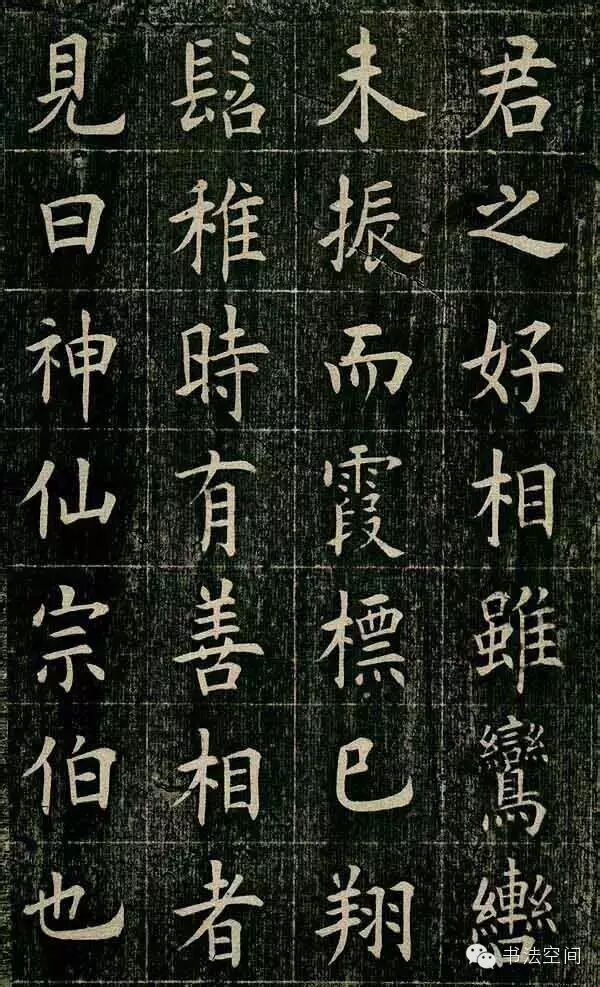 君之好相雖鸞轡
未振而霞標已翔
髫稚時有善相者
見曰神仙宗伯也
书法空间